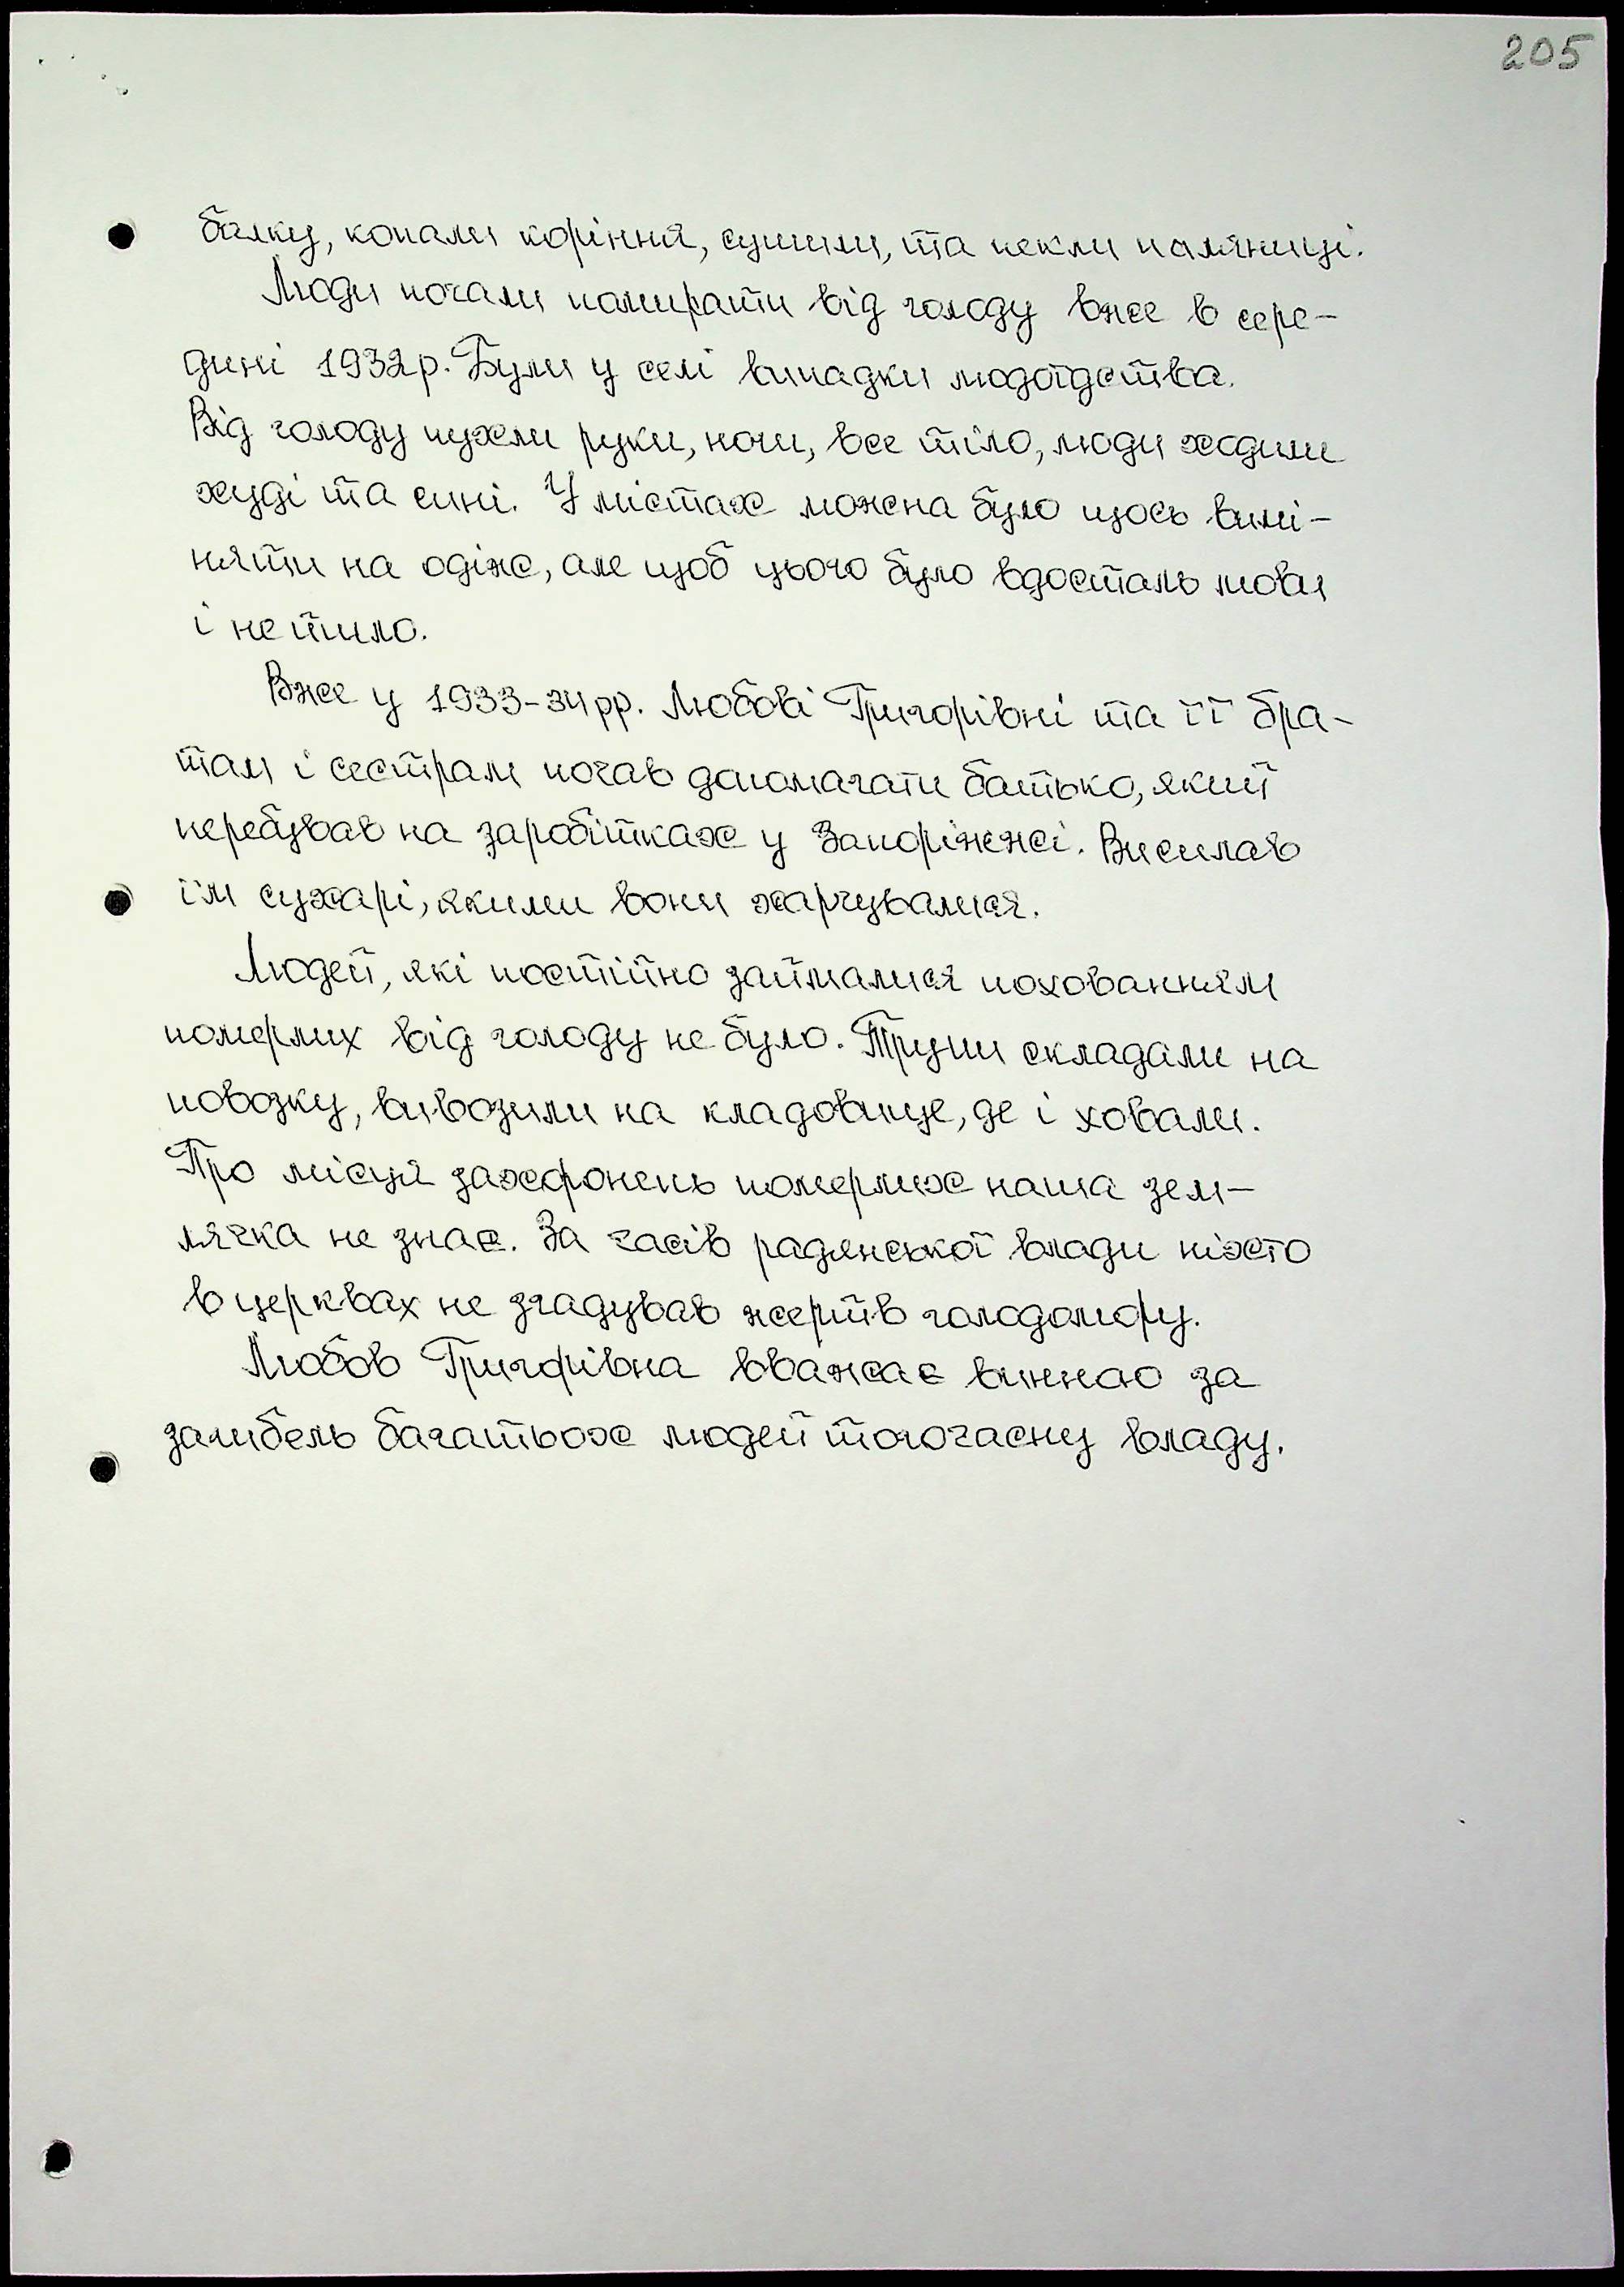 205
балку, копали коріння, сушили, та пекли паляниці.
Люди почали помирати від голоду вже в сере-
дині 1932р. Були у селі випадки людоїдства.
Від голоду пухли руки, ноги, все тіло, люди ходили
худі та сині. У містах можна було щось вимі-
няти на одіж, але щоб цього було вдосталь мови
і не йшло.
Вже у 1933-34рр. Любові Григорівні та її бра-
там і сестрам почав допомагати батько, який
перебував на заробітках у Запоріжжі. Висилав
їм сухарі, якими вони харчувалися.
Людей, які постійно займалися похованням
померлих від голоду не було. Трупи складали на
повозку, вивозили на кладовище, де і ховали.
Про місця захоронень померлих наша зем-
лячка не знає. За часів радянської влади ніхто
в церквах не згадував жертв голодомору.
Любов Григорівна вважає винною за
загибель багатьох людей тогочасну владу.